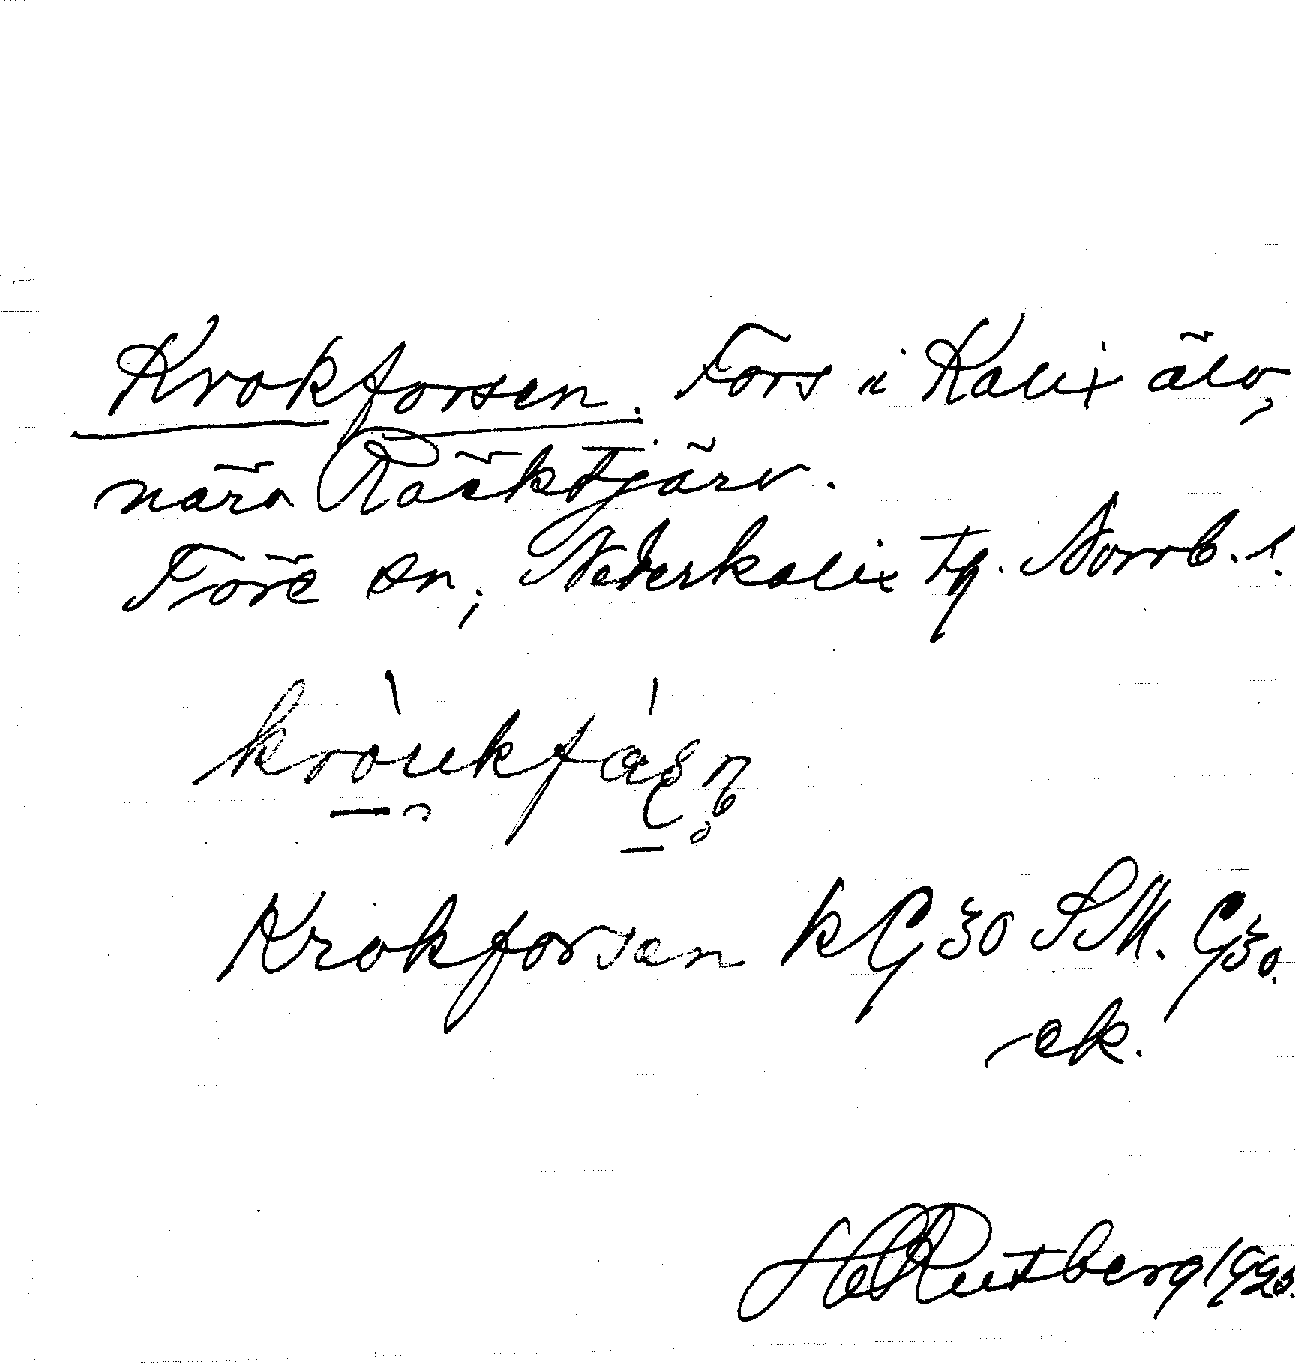 Krokforsen. Fors i Kalix älv,
nära Räcktjärv.
Töre sn, Nederkalix tg. Norrb. l.
Krokforsen kG30 SM. G30.
ek.
Rutberg 1925.